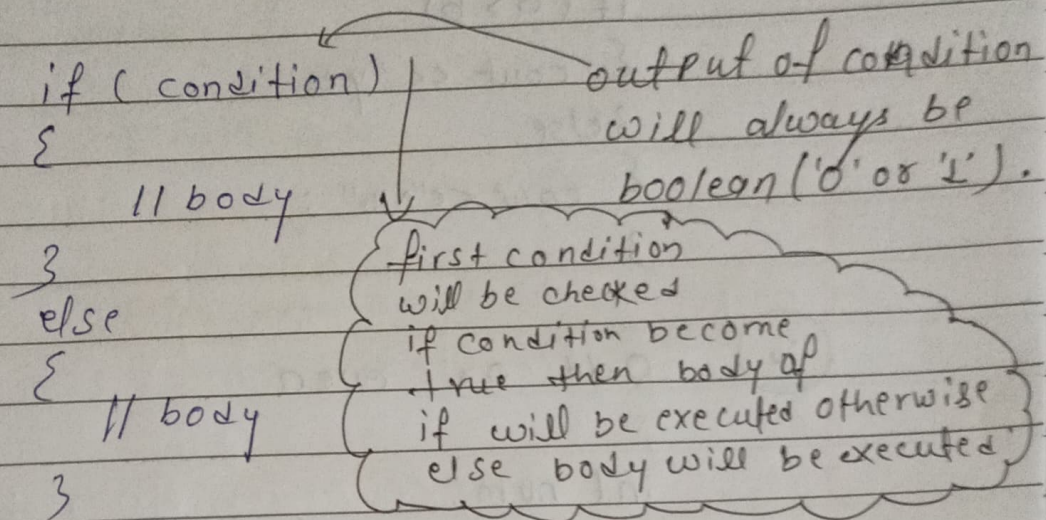 if ( condition )
{
// body
}
else
{
// body
}
output of condition
will always be
boolean ('0' or '1').
first condition
will be checked
if condition become
true then body of
if will be executed otherwise
else body will be executed